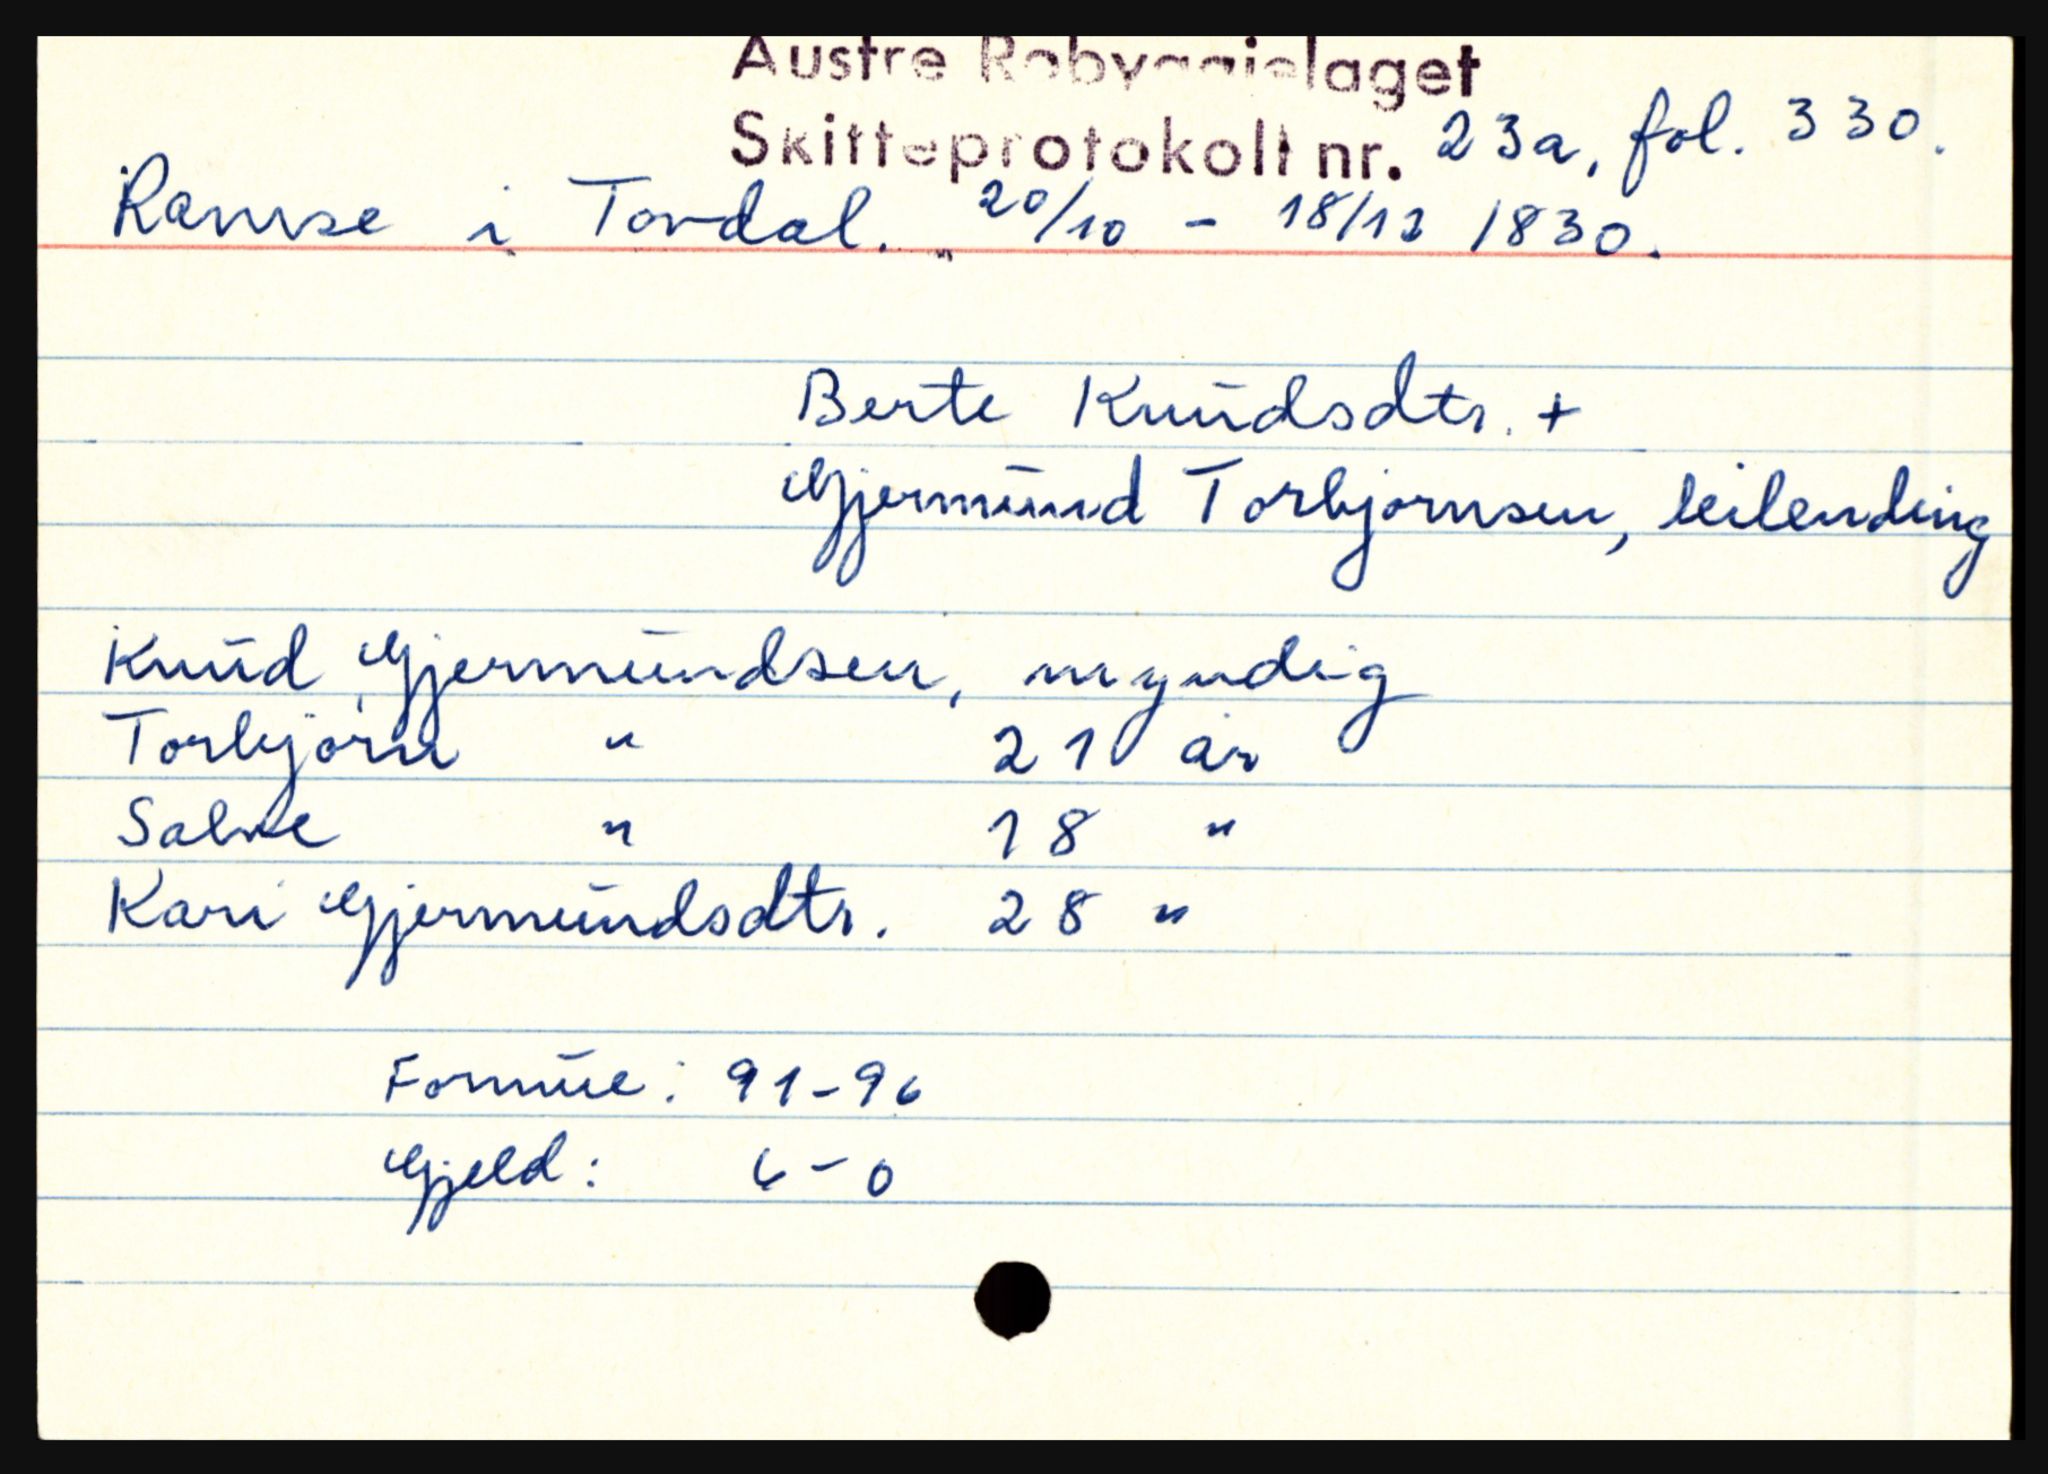 Austre Robyggjelaget
Skifteprotokoll nr. 23a, fol. 330.
Ramse i Tovdal. 20/10 - 18/12 1830.
Berte Knudsdtr. +
Gjermund Torbjørnsen, leilending
Knud Gjermundsen, myndig
Torbjørn " 21 år
Salve " 18 "
Kari Gjermundsdtr. 28 "
Formue: 91-96
Gjeld: 6-0